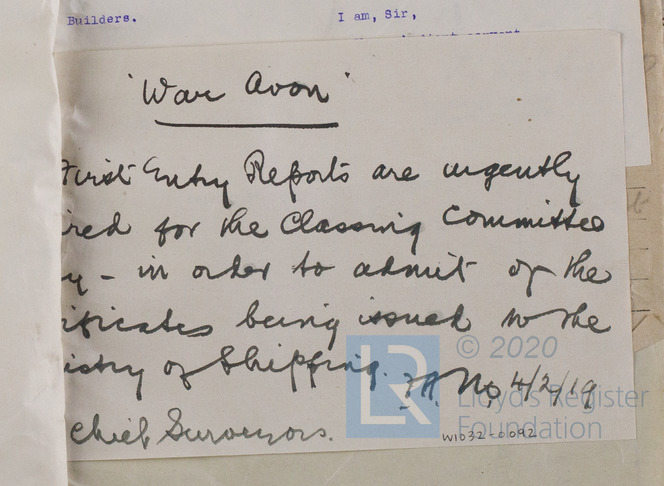 Builders.
I am, Sir,
'War Avon'
First Entry Reports are urgently
ired for the Classing Committee
y - in order to admit of the
ificates being issued to the
istry of Shipping.
4/2/19
Chief Surveyors.
W1032-0092
LR
© 2020
Lloyd's Register
Foundation